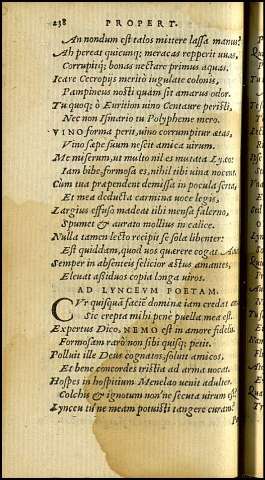 238 PROPERT.
An nondum est talos mittere lassa manus?
Ah pereat quicunq; meracas repperit uuas,
Corrupitq; bonas nectare primus aquas.
Icare Cecropijs merito iugulate colonis,
Pampineus nosti quàm sit amarus odor.
Tu quoq; ô Eurition uino Centaure peristi,
Nec non Ismario tu Polypheme mero.
VINO forma perit, uino corrumpitur ætas,
Vino sæpe suum nescit amica uirum.
Me miserum, ut multo nil es mutata Lyæo:
Iam bibe, formosa es, nihil tibi uina nocent.
Cum tua præpendent demissa in pocula serta,
Et mea deducta carmina uoce legis,
Largius effuso madeat tibi mensa falerno,
Spumet & aurato mollius in calice.
Nulla tamen lecto recipit se sola libenter:
Est quiddam, quod uos quærere cogat
Semper in absenteis felicior æstus amantes,
Eleuat assiduos copia longa uiros.
AD LYNCEVM POETAM.
CVr quisquā faciē domine iam credat
Sic erepta mihi penè puella mea est.
Expertus Dico, NEMO est in amore fidelis
Formosam rarò non sibi quisq; petit.
Polluit ille Deus cognatos, soluit amicos
Et bene concordes tristia ad arma uocat.
Hospes in hospitium Menelao uenit adulter
Colchis & ignotum non'ne secuta uirum est?
Lynceu tu'ne meam potuisti tangere curam?